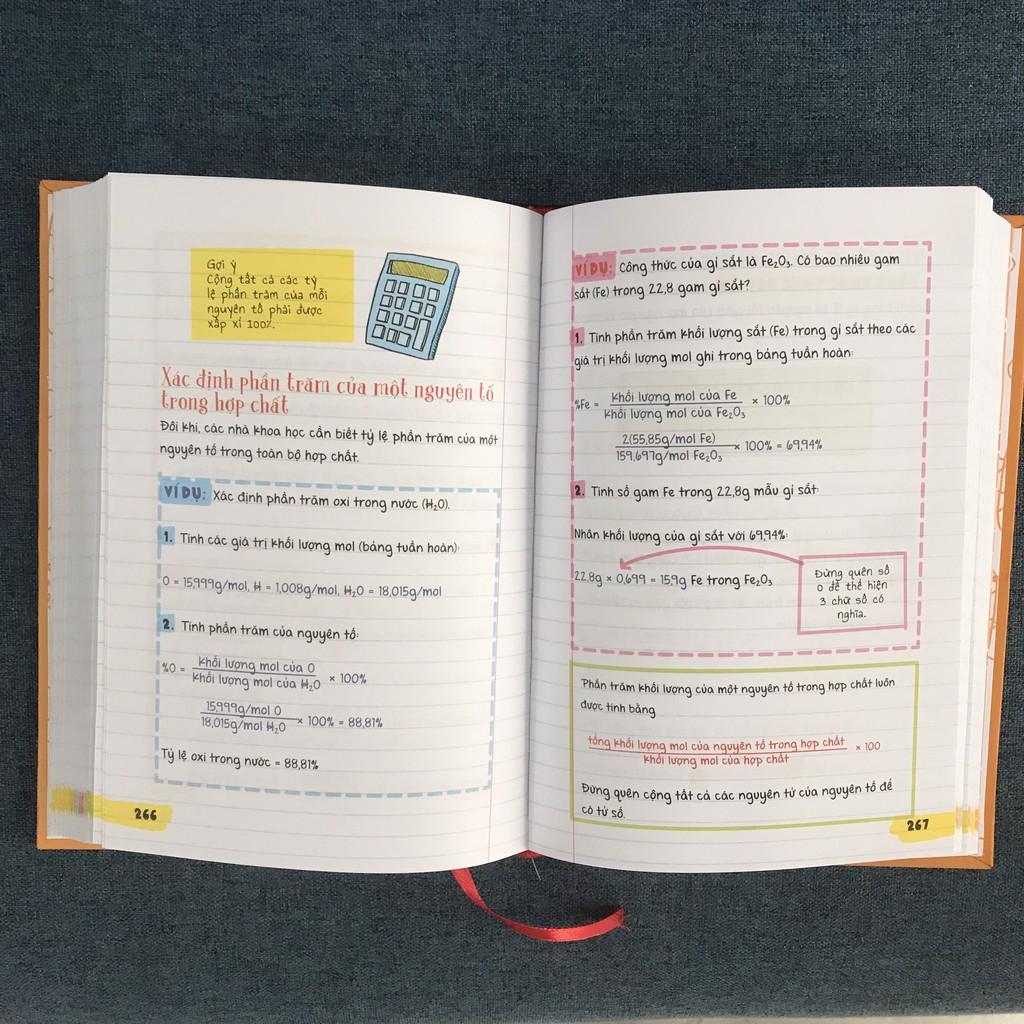 Gợi ý
Cộng tất cả các tỷ
lệ phần trăm của mỗi
nguyên tố phải được
xấp xỉ 100%.
Xác định phần trăm của một nguyên tố
trong hợp chất
Đôi khi, các nhà khoa học cần biết tỷ lệ phần trăm của một
nguyên tố trong toàn bộ hợp chất.
VÍ DỤ: Xác định phần trăm oxi trong nước (H₂O).
1. Tính các giá trị khối lượng mol (bảng tuần hoàn):
O = 15,999g/mol, H = 1,008g/mol, H₂O = 18,015g/mol
2. Tính phần trăm của nguyên tố:
%O = khối lượng mol của O
khối lượng mol của H₂O
× 100%
15,999g/mol O
18,015g/mol H₂O
× 100% = 88,81%
Tỷ lệ oxi trong nước = 88,81%
266
VÍ DỤ: Công thức của gỉ sắt là Fe₂O₃. Có bao nhiêu gam
sắt (Fe) trong 22,8 gam gỉ sắt?
1. Tính phần trăm khối lượng sắt (Fe) trong gỉ sắt theo các
giá trị khối lượng mol ghi trong bảng tuần hoàn:
%Fe = khối lượng mol của Fe
khối lượng mol của Fe₂O₃
× 100%
2(55,85g/mol Fe)
159,697g/mol Fe₂O₃
× 100% = 69,94%
2. Tính số gam Fe trong 22,8g mẫu gỉ sắt:
Nhân khối lượng của gỉ sắt với 69,94%:
22,8g × 0,699 = 15,9g Fe trong Fe₂O₃
Đừng quên số
0 để thể hiện
3 chữ số có
nghĩa.
Phần trăm khối lượng của một nguyên tố trong hợp chất luôn
được tính bằng
tổng khối lượng mol của nguyên tố trong hợp chất
khối lượng mol của hợp chất
× 100
Đừng quên cộng tất cả các nguyên tử của nguyên tố để
có tử số.
267